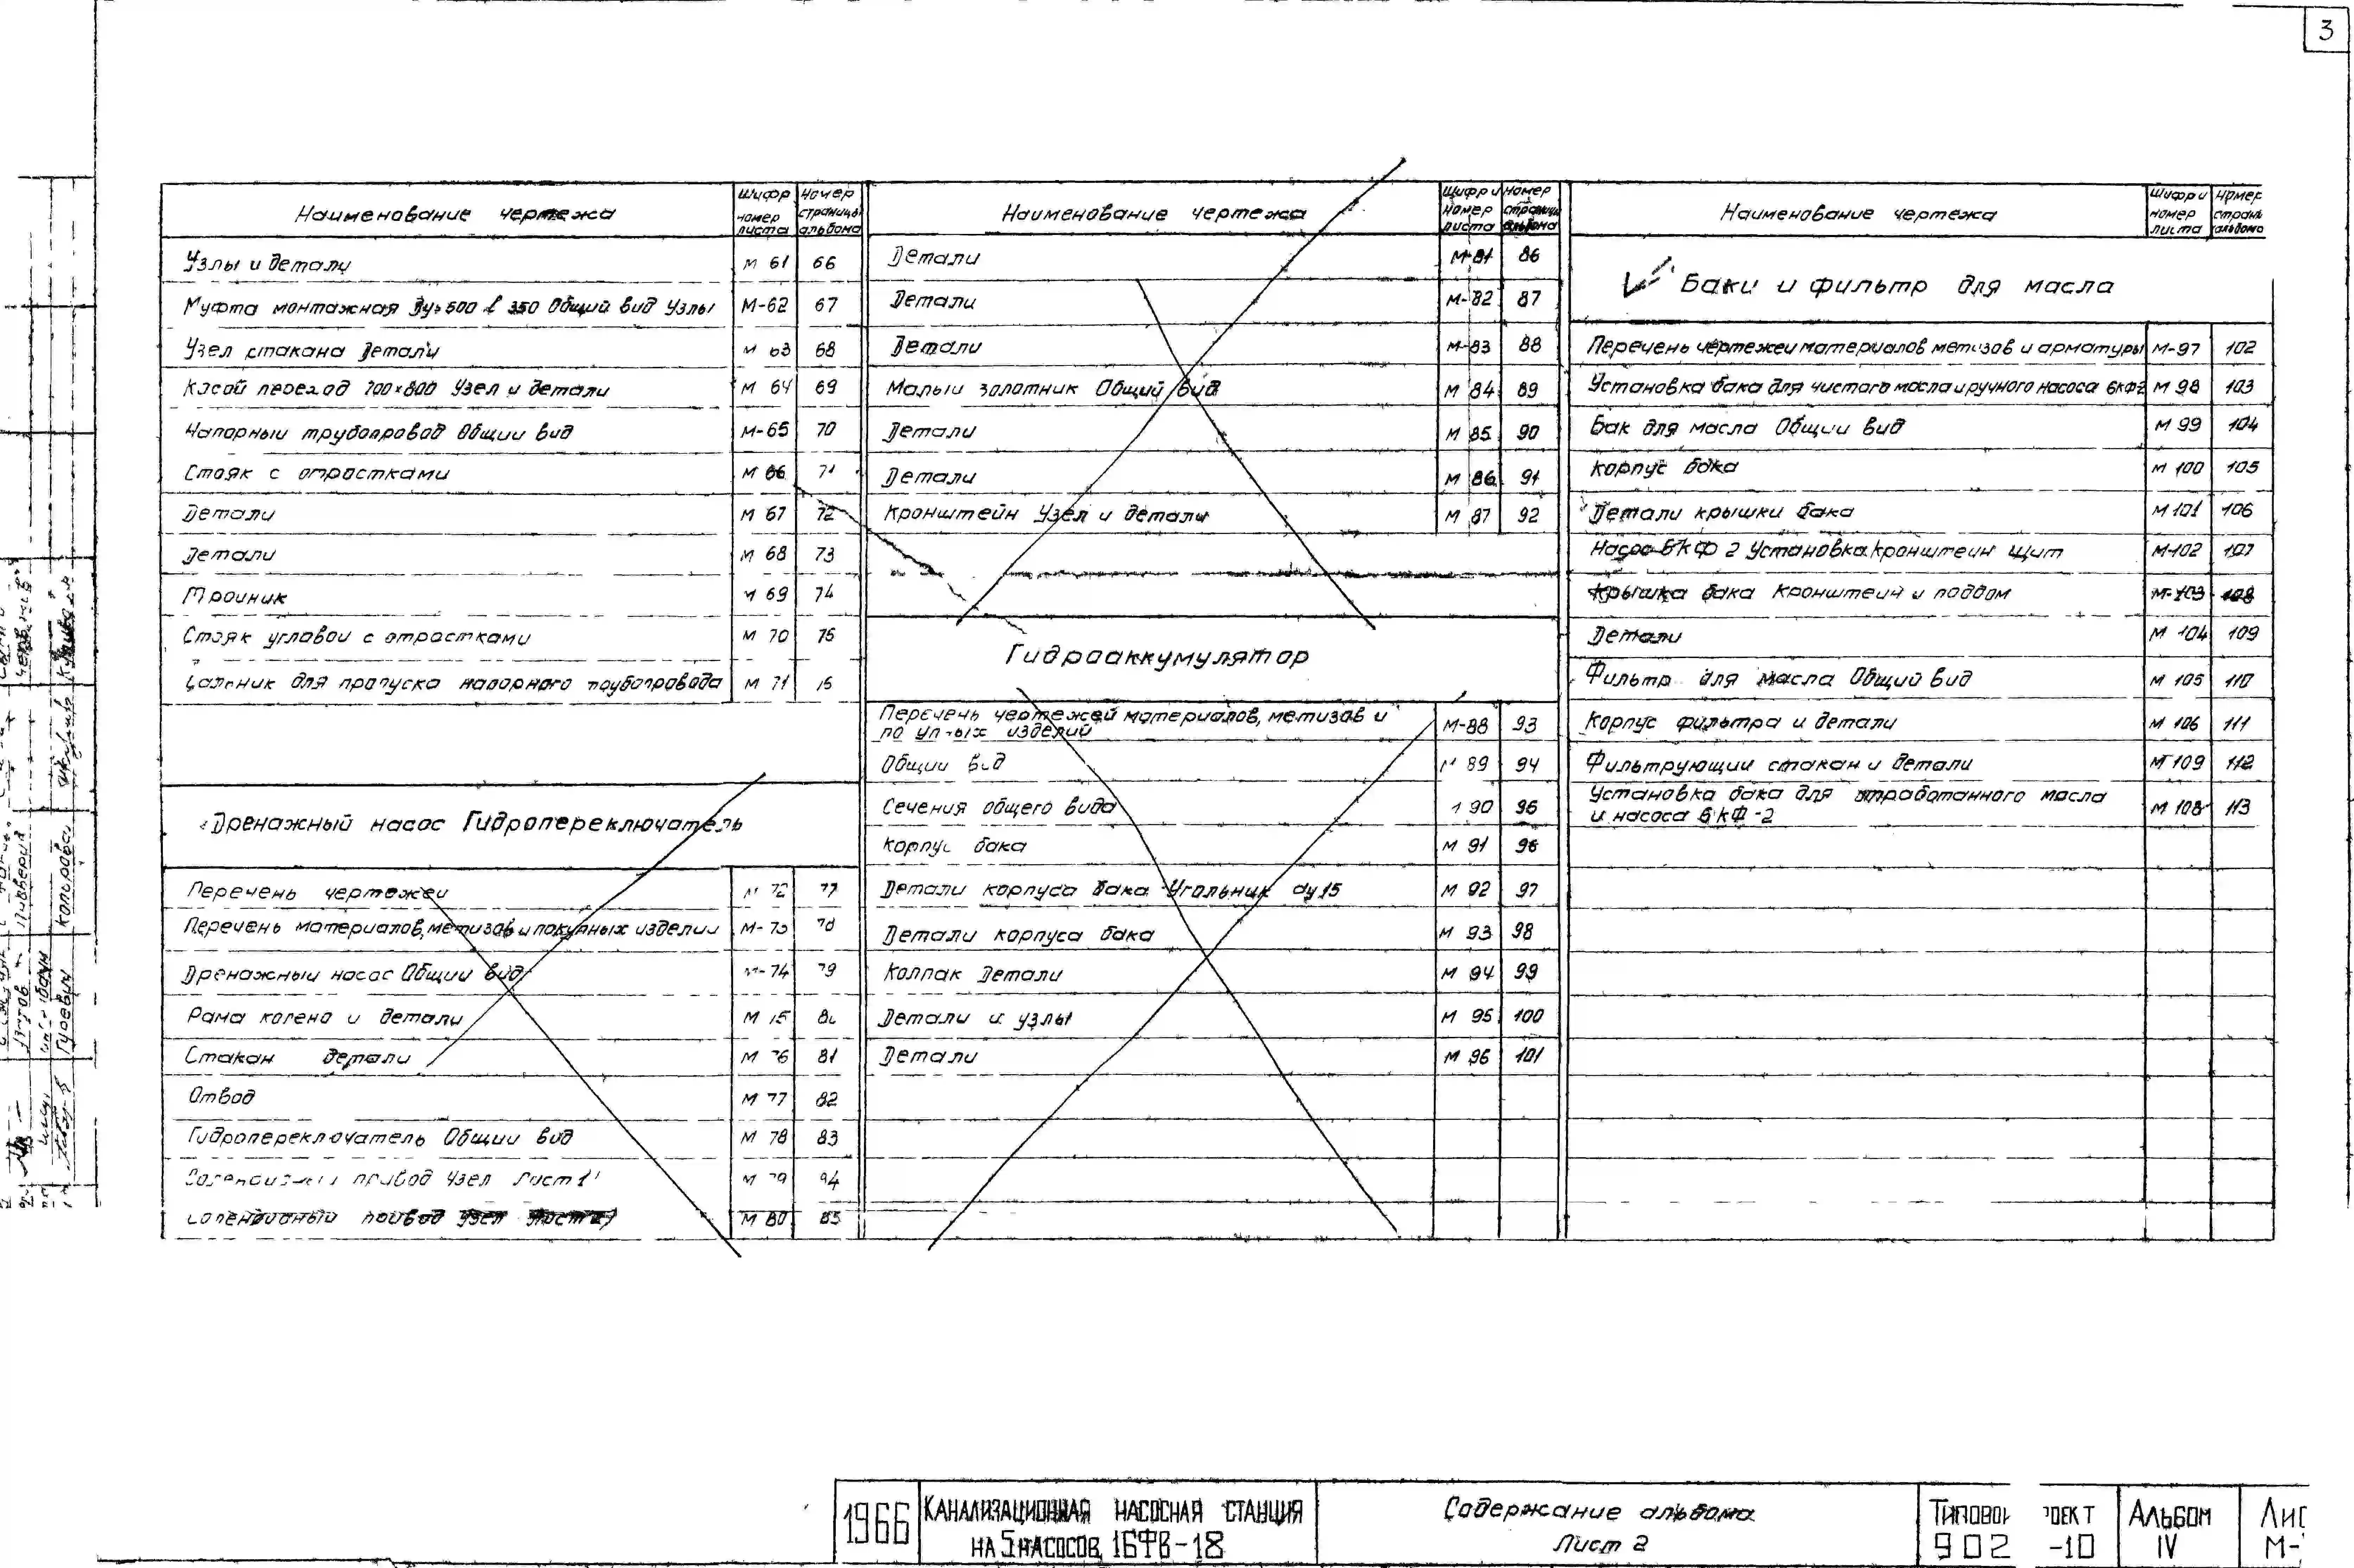 3
Наименование чертежа
Шифр номер листа
Номер страницы альбома
Узлы и детали М 61 66
Муфта монтажная Ду=500 ℓ 350 Общий вид Узлы М-62 67
Узел стакана Детали М 63 68
Косой переход 700×800 Узел и детали М 64 69
Напорный трубопровод Общий вид М-65 70
Стояк с отростками М 66 71
Детали М 67 72
Детали М 68 73
Тройник М 69 74
Стояк угловой с отростками М 70 75
Сальник для пропуска напорного трубопровода М 71
Дренажный насос Гидропереключатель
Перечень чертежей М 72 77
Перечень материалов, метизов и покупных изделий М-73 78
Дренажный насос Общий вид М-74 79
Рама колено и детали М 75
Стакан детали М 76 81
Отвод М 77 82
Гидропереключатель Общий вид М 78 83
привод Узел Лист 1 М 79
Соленоидный привод Узел Лист 2 М 80 85
Наименование чертежа
Шифр и номер листа
Номер страницы альбома
Детали М-81 86
Детали М-82 87
Детали М-83 88
Малый золотник Общий вид М 84 89
Детали М 85 90
Детали М 86 91
Кронштейн Узел и детали М 87 92
Гидроаккумулятор
Перечень чертежей материалов, метизов и
изделий М-88 93
Общий вид М 89 94
Сечения общего вида 90 95
Корпус бака М 91 96
Детали корпуса бака Угольник dy 15 М 92 97
Детали корпуса бака М 93 98
Колпак Детали М 94 99
Детали и узлы М 95 100
Детали М 96 101
Наименование чертежа
Шифр и номер листа
Номер страни альбома
Баки и фильтр для масла
Перечень чертежей материалов метизов и арматуры М-97 102
Установка бака для чистого масла и ручного насоса БКФ2 М 98 103
Бак для масла Общий вид М 99 104
Корпус бака М 100 105
Детали крышки бака М 101 106
Насос БКФ 2 Установка Кронштейн Щит М-102 107
Крышка бака Кронштейн и поддон М-103 108
Детали М 104 109
Фильтр для масла Общий вид М 105 110
Корпус фильтра и детали М 106 111
Фильтрующий стакан и детали М 109 112
Установка бака для отработанного масла
и насоса БКФ-2 М 108 113
1966
Канализационная насосная станция
на 5 насосов 16ФВ-18
Содержание альбома
Лист 2
Типовой
902 -10
Альбом
IV
Лис
М-